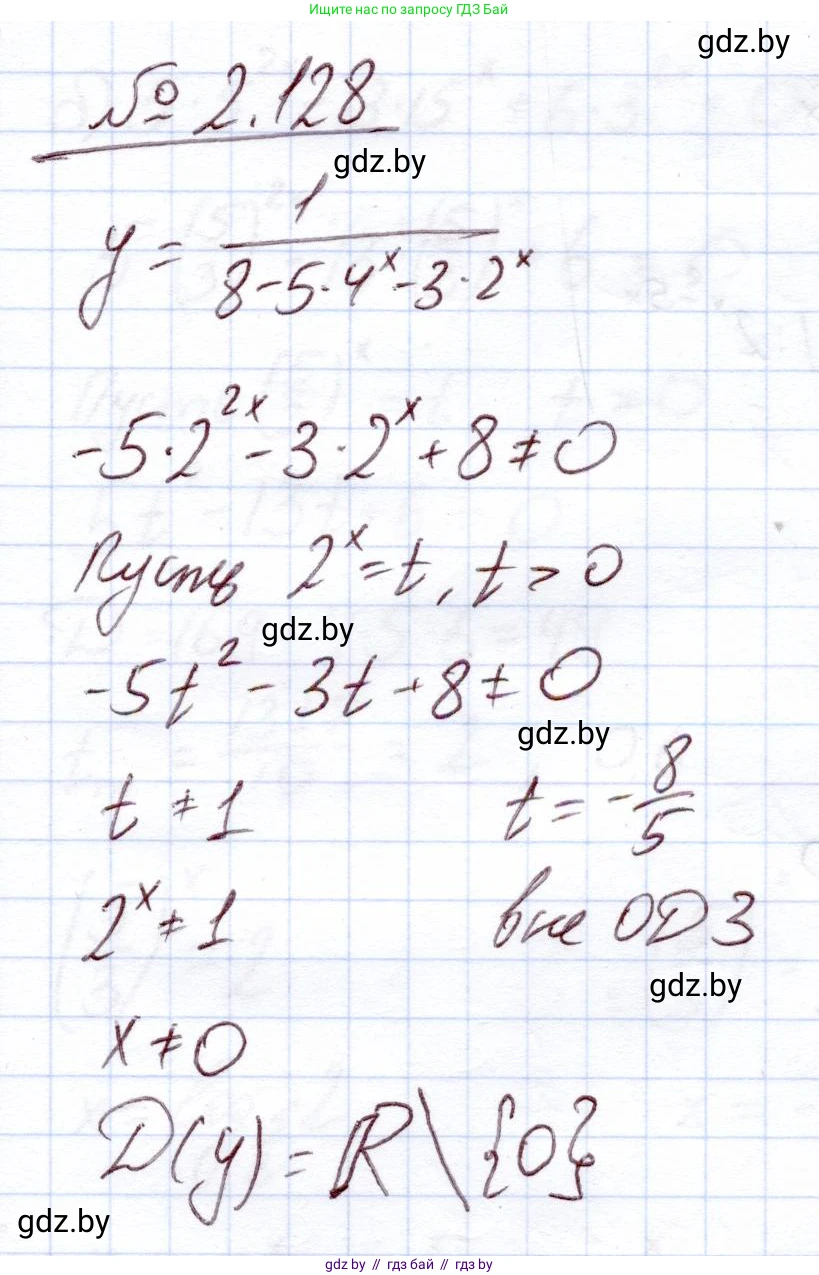 Ищите нас по запросу ГДЗ Бай
gdz.by
№ 2.128
gdz.by
y = 1 / (8 - 5·4^x - 3·2^x)
-5·2^2x - 3·2^x + 8 ≠ 0
Пусть 2^x = t, t > 0
gdz.by
-5t^2 - 3t + 8 ≠ 0
gdz.by
t ≠ 1 t = -8/5
2^x ≠ 1 вне ОДЗ
gdz.by
x ≠ 0
D(y) = R \ {0}
gdz.by
gdz.by // гдз бай // гдз by